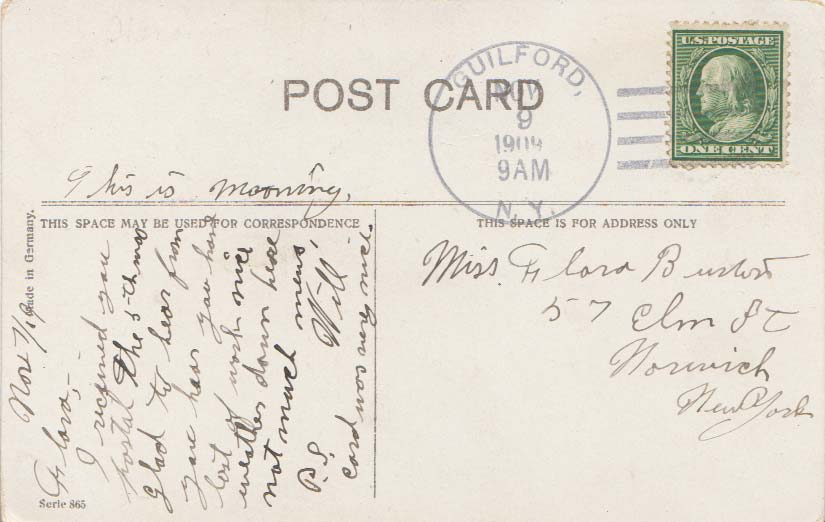 POST CARD
GUILFORD,
NOV
9
1909
9AM
N.Y.
U.S. POSTAGE
ONE CENT
This is mooning,
THIS SPACE MAY BE USED FOR CORRESPONDENCE
THIS SPACE IS FOR ADDRESS ONLY
Made in Germany.
Nov 7/09
Flora,-
I received you
postal the 5-th was
glad to hear from
you hear you have
lost of work nice
weather down here
not much news,
Will
P.S.
card was very nice.
Miss Flora Burton
57 Elm St
Norwich
New York
Serie 865